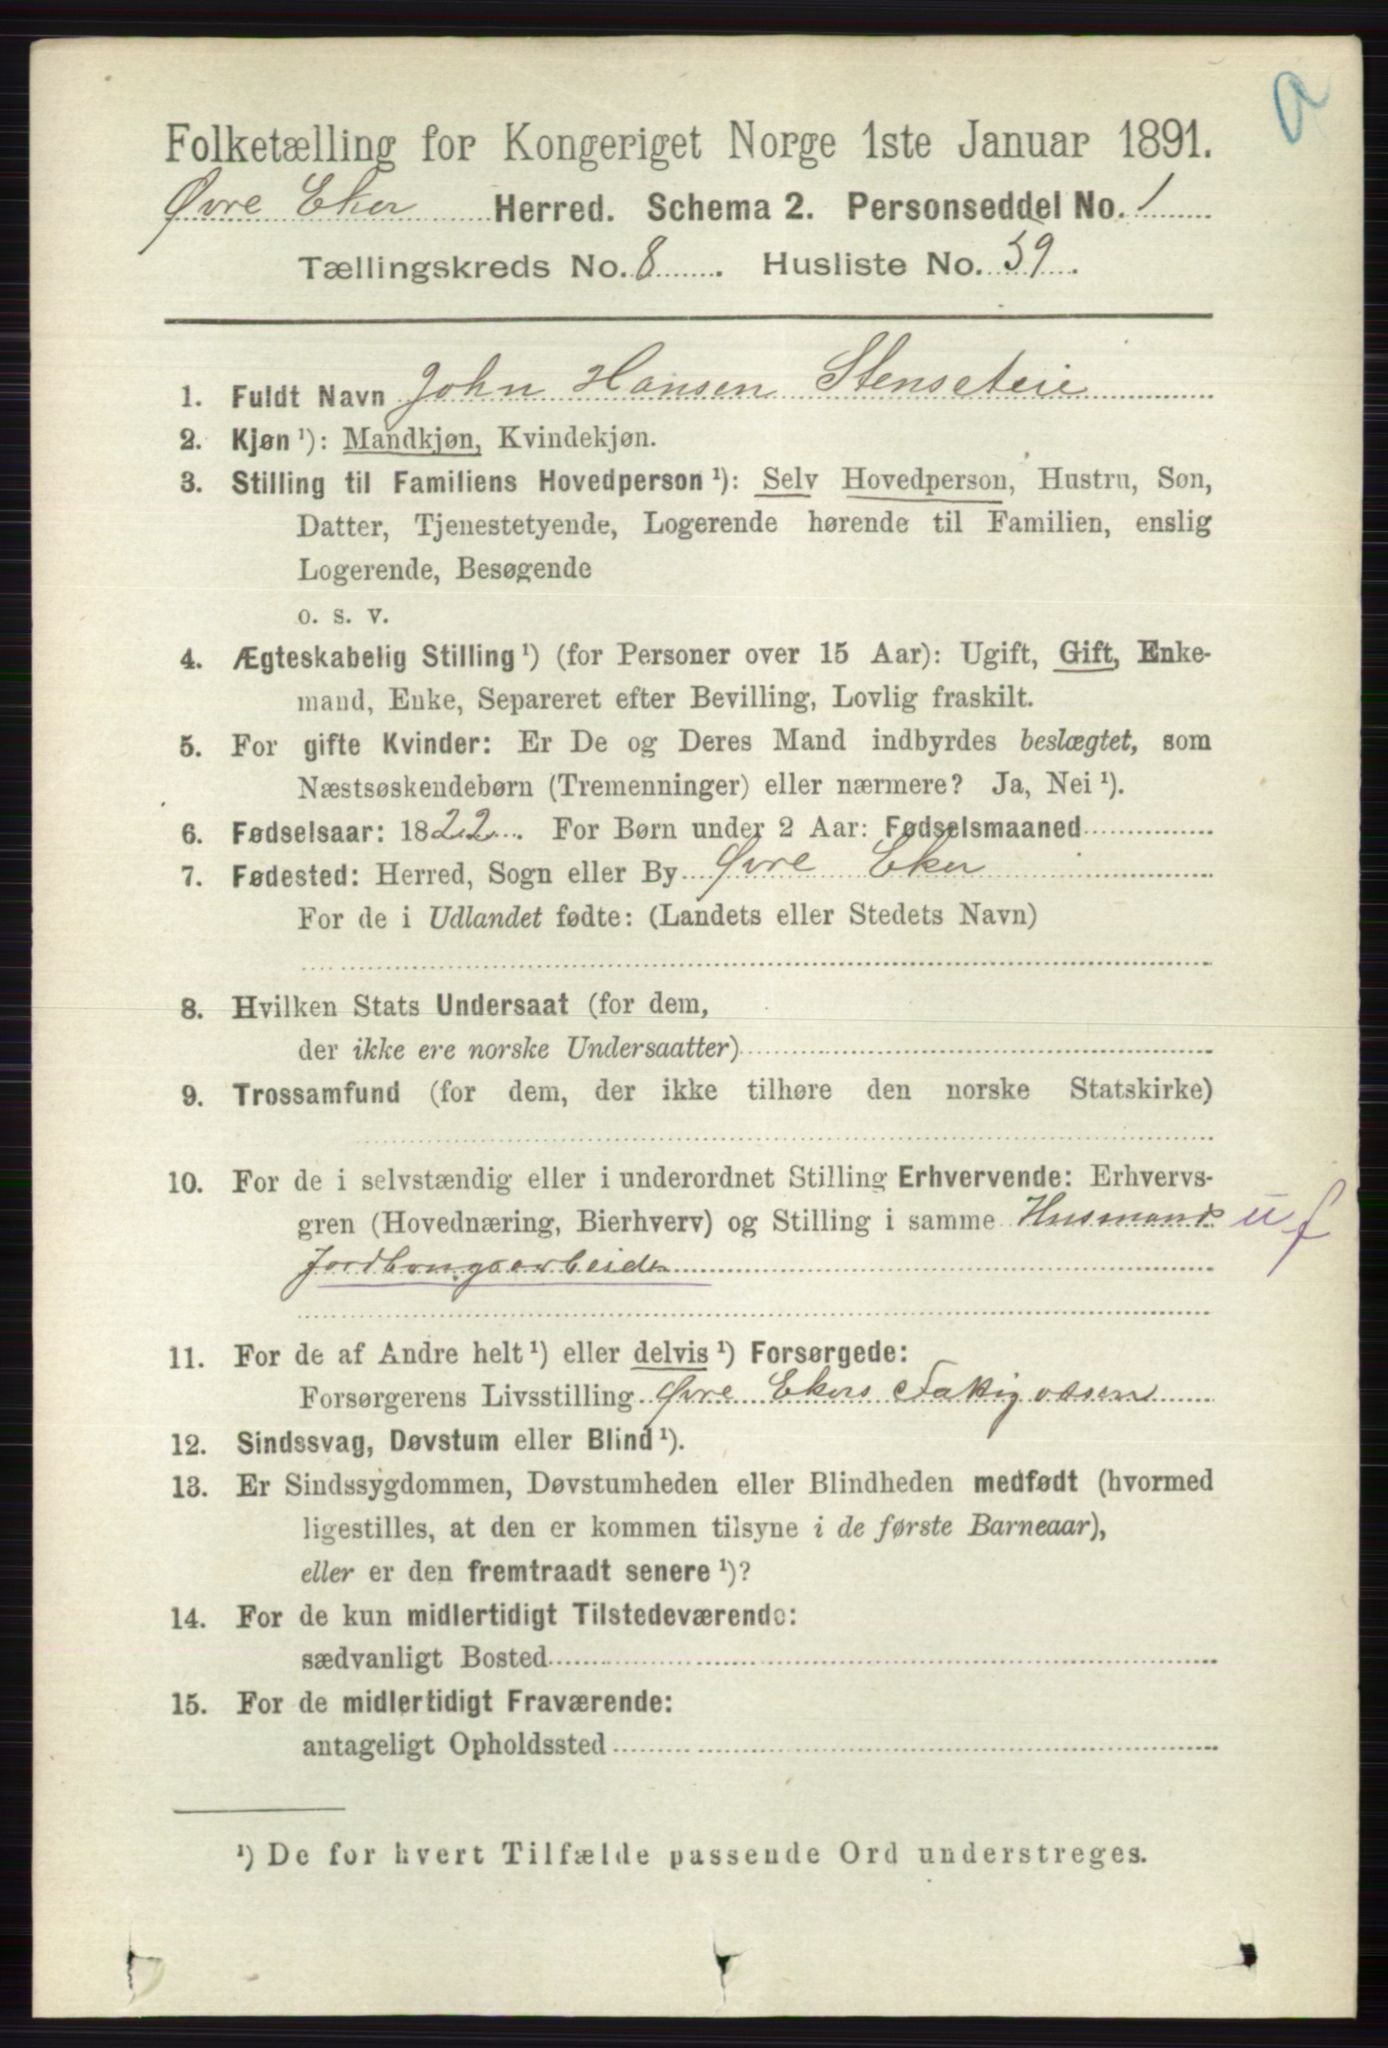 Folketælling for Kongeriget Norge 1ste Januar 1891.
Øvre Eker Herred. Schema 2. Personseddel No. 1
Tællingskreds No. 8. Husliste No. 59.
1. Fuldt Navn John Hansen Stenseteie
2. Kjøn ¹): Mandkjøn, Kvindekjøn.
3. Stilling til Familiens Hovedperson ¹): Selv Hovedperson, Hustru, Søn,
Datter, Tjenestetyende, Logerende hørende til Familien, enslig
Logerende, Besøgende
o. s. v.
4. Ægteskabelig Stilling ¹) (for Personer over 15 Aar): Ugift, Gift, Enke-
mand, Enke, Separeret efter Bevilling, Lovlig fraskilt.
5. For gifte Kvinder: Er De og Deres Mand indbyrdes beslægtet, som
Næstsøskendebørn (Tremenninger) eller nærmere? Ja, Nei ¹).
6. Fødselsaar: 1822. For Børn under 2 Aar: Fødselsmaaned
7. Fødested: Herred, Sogn eller By Øvre Eker
For de i Udlandet fødte: (Landets eller Stedets Navn)
8. Hvilken Stats Undersaat (for dem,
der ikke ere norske Undersaatter)
9. Trossamfund (for dem, der ikke tilhøre den norske Statskirke)
10. For de i selvstændig eller i underordnet Stilling Erhvervende: Erhvervs-
gren (Hovednæring, Bierhverv) og Stilling i samme Husmand uf
Jordbrugsarbeider
11. For de af Andre helt ¹) eller delvis ¹) Forsørgede:
Forsørgerens Livsstilling Øvre Ekers
12. Sindssvag, Døvstum eller Blind ¹).
13. Er Sindssygdommen, Døvstumheden eller Blindheden medfødt (hvormed
ligestilles, at den er kommen tilsyne i de første Barneaar),
eller er den fremtraadt senere ¹)?
14. For de kun midlertidigt Tilstedeværende:
sædvanligt Bosted
15. For de midlertidigt Fraværende:
antageligt Opholdssted
¹) De for hvert Tilfælde passende Ord understreges.